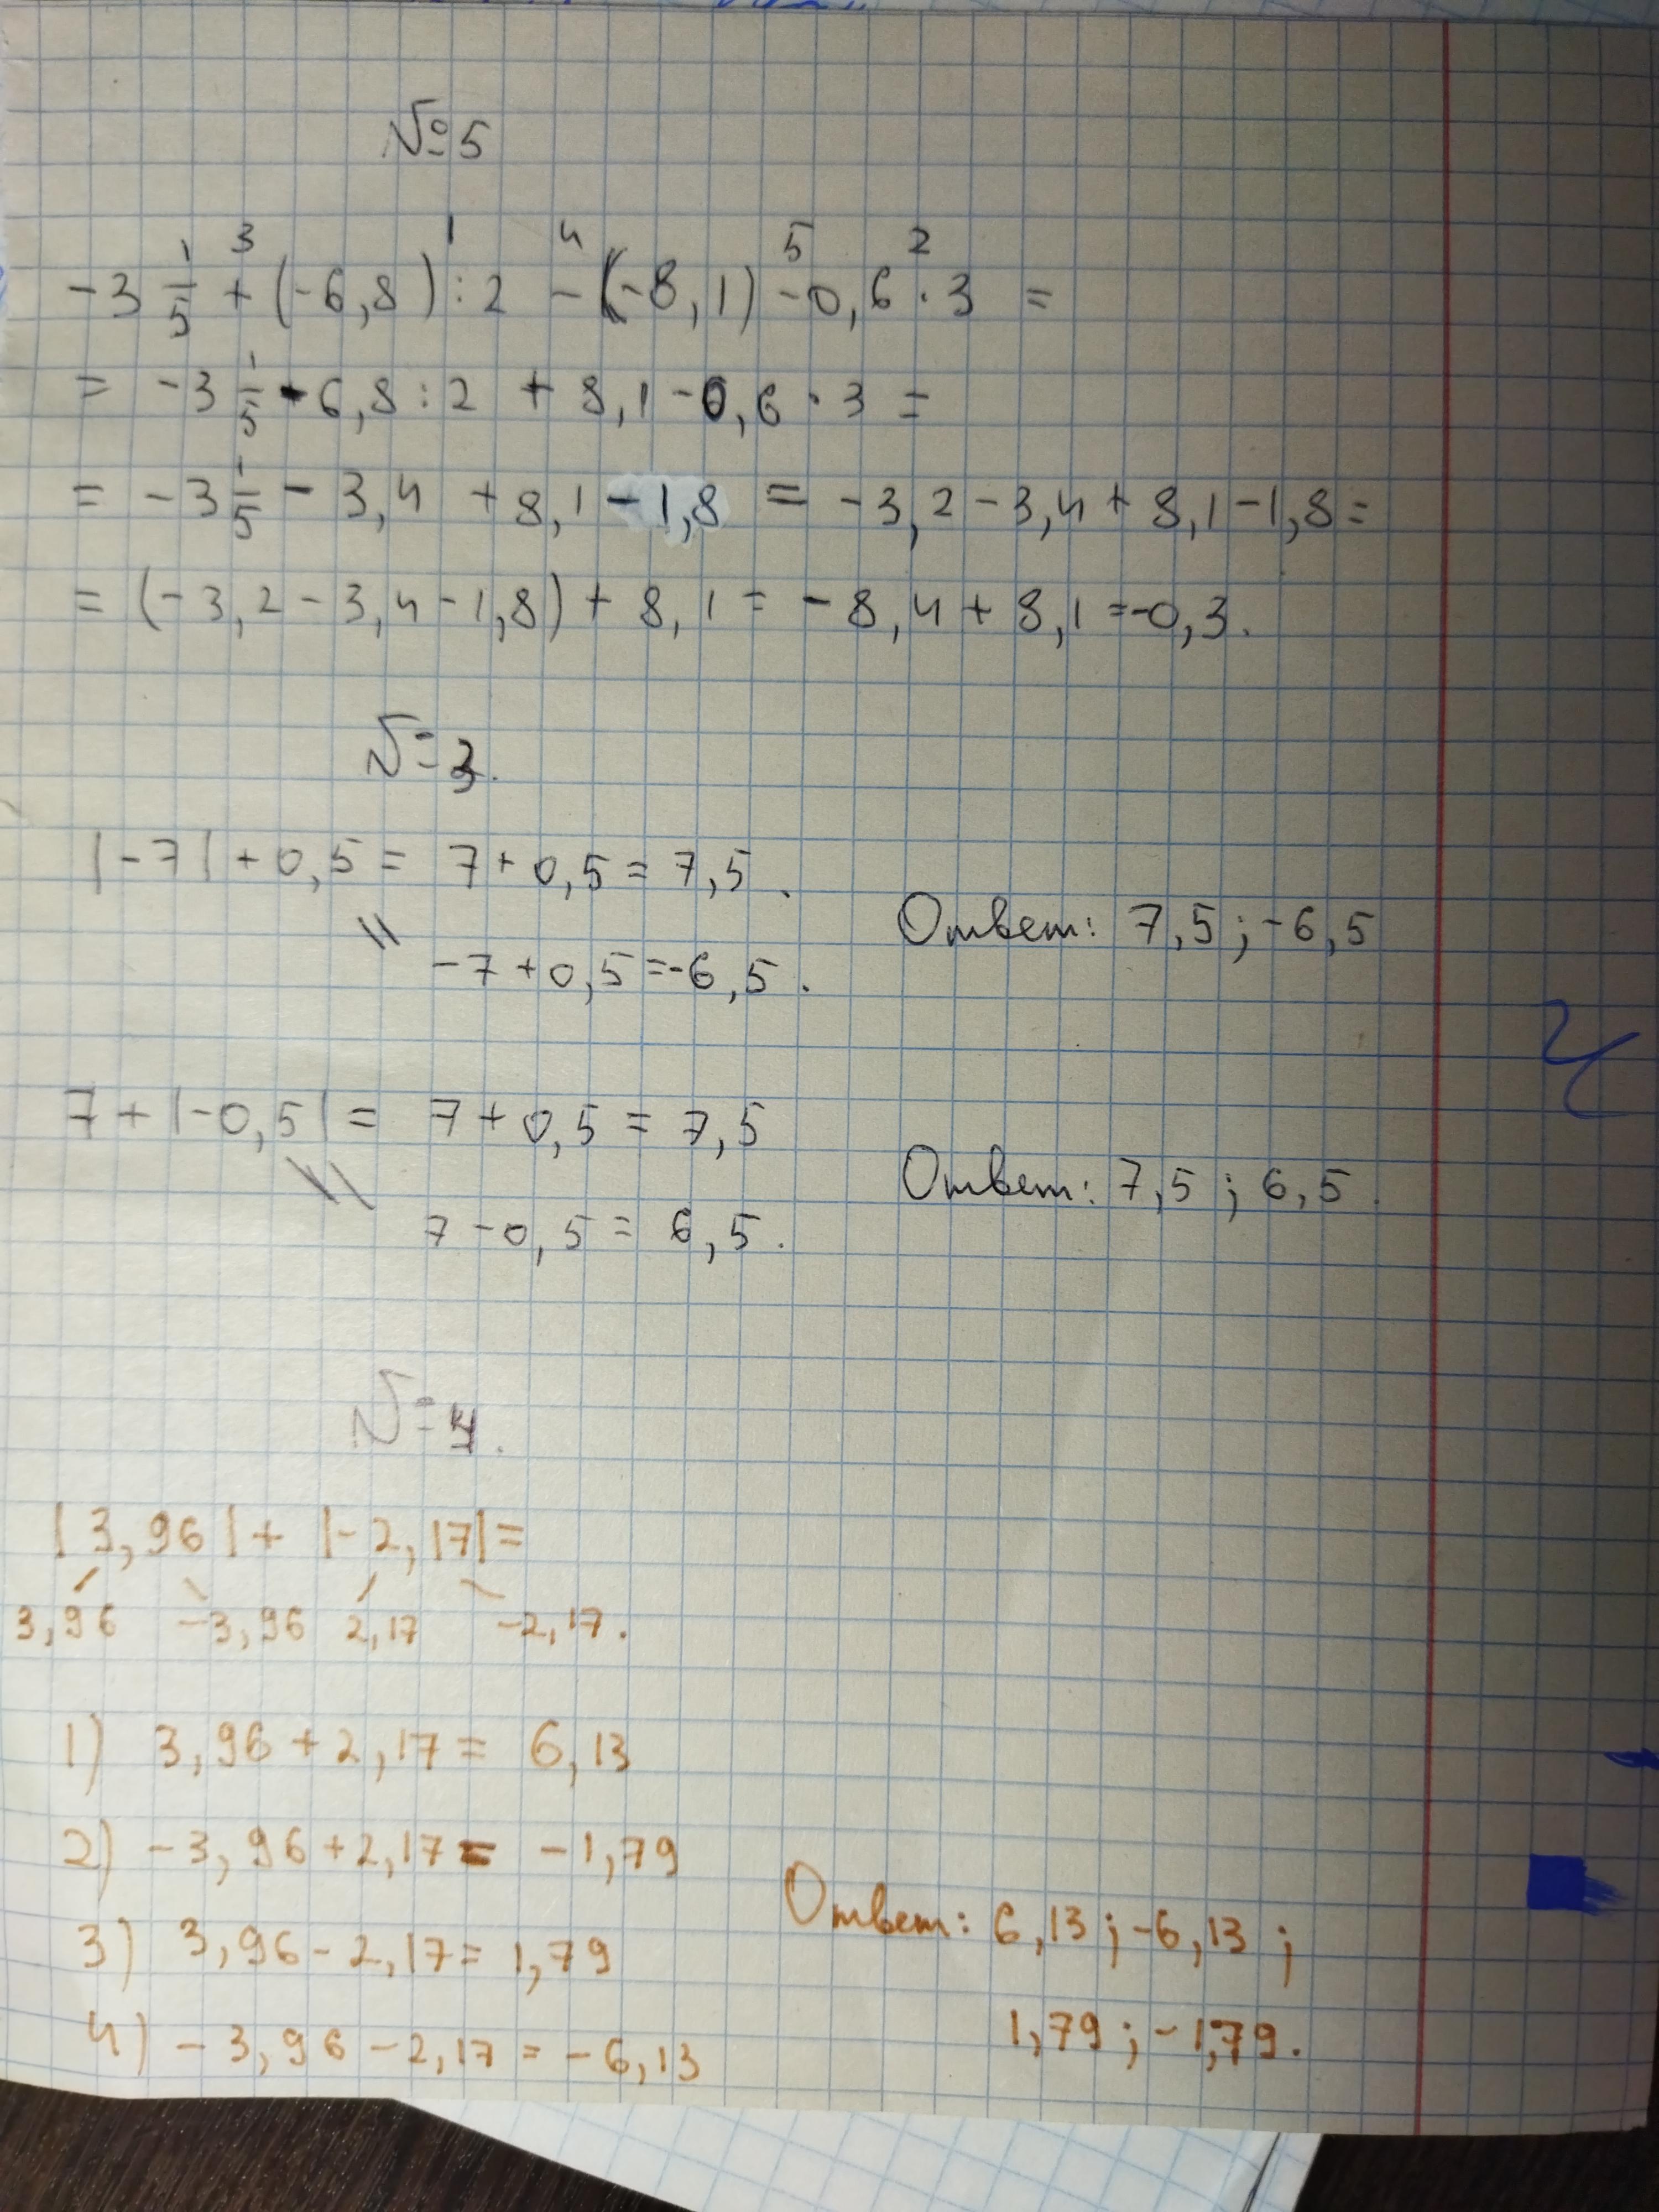 № 5
1 3 1 4 5 2
-3 1/5 + (-6,8) : 2 - (-8,1) - 0,6 · 3 =
= -3 1/5 - 6,8 : 2 + 8,1 - 0,6 · 3 =
= -3 1/5 - 3,4 + 8,1 - 1,8 = -3,2 - 3,4 + 8,1 - 1,8 =
= (-3,2 - 3,4 - 1,8) + 8,1 = -8,4 + 8,1 = -0,3.
№ 3.
|-7| + 0,5 = 7 + 0,5 = 7,5.
Ответ: 7,5 ; -6,5
= -7 + 0,5 = -6,5.
7 + |-0,5| = 7 + 0,5 = 7,5
Ответ: 7,5 ; 6,5.
= 7 - 0,5 = 6,5.
№ 4.
|3,96| + |-2,17| =
3,96 -3,96 2,17 -2,17.
1) 3,96 + 2,17 = 6,13
2) -3,96 + 2,17 = -1,79
3) 3,96 - 2,17 = 1,79
Ответ: 6,13 ; -6,13 ;
4) -3,96 - 2,17 = -6,13
1,79 ; -1,79.